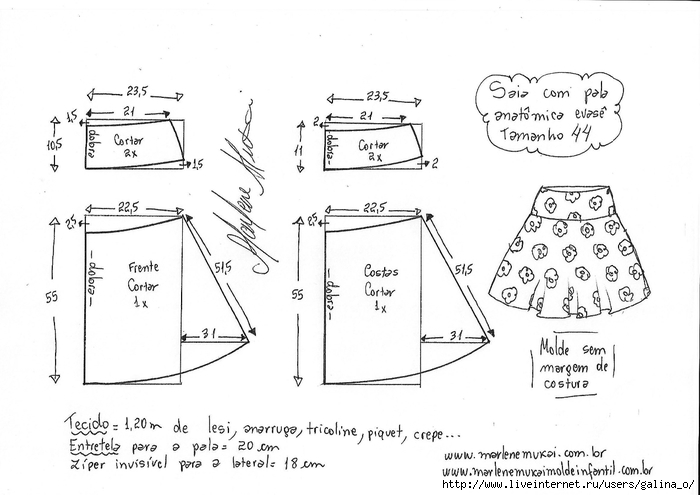 23,5
21
1,5
10,5
dobra-
Cortar
2x
1,5
23,5
21
2
11
dobra-
Cortar
2x
2
Saia com pala
anatômica evasê
Tamanho 44
22,5
2,5
55
- dobra -
Frente
Cortar
1x
51,5
31
22,5
2,5
55
- dobra -
Costas
Cortar
1x
51,5
31
Marlene Mukai
Molde sem
margem de
costura
Tecido = 1,20m de lesi, anarruga, tricoline, piquet, crepe...
Entretela para a pala = 20 cm
Zíper invisível para a lateral = 18 cm
www.marlenemukai.com.br
www.marlenemukaimoldeinfantil.com.br
http://www.liveinternet.ru/users/galina_o/